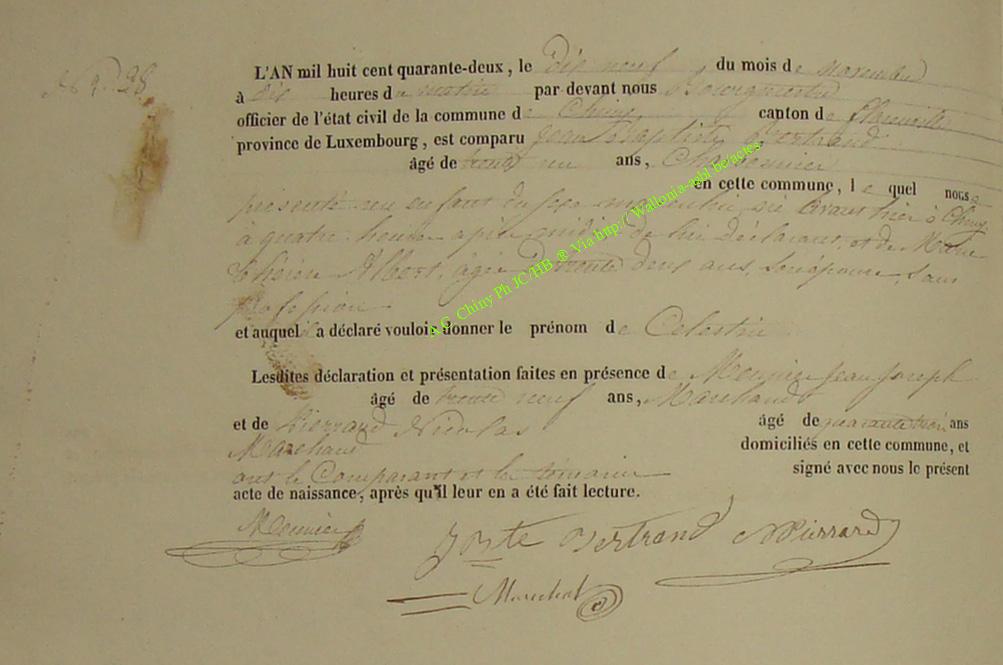 N° 28
L'AN mil huit cent quarante-deux, le dix neuf du mois de novembre
à dix heures de matin par devant nous Bourgmestre
officier de l'état civil de la commune de Chiny canton de Florenville
province de Luxembourg, est comparu Jean Baptiste Bertrand
âgé de trente un ans,
en cette commune, le quel nous a
présenté un enfant du sexe masculin né avant hier à Chiny
à quatre heures après midi de lui déclarant, et de Marie
Thérèse Albert, âgée de trente deux ans, son épouse, sans
profession
et auquel il a déclaré vouloir donner le prénom de Celestin
Lesdites déclaration et présentation faites en présence de Meunier Jean Joseph
âgé de trente neuf ans, Marchand
et de Pierrard Nicolas âgé de quarante trois ans
Marchand domiciliés en cette commune, et
ont le Comparant et les témoins signé avec nous le présent
acte de naissance, après qu'il leur en a été fait lecture.
Meunier Jbte Bertrand NPierrard
Marechal
A.G. Chiny Ph JC/HB ® Via http://Wallonia-asbl.be/actes